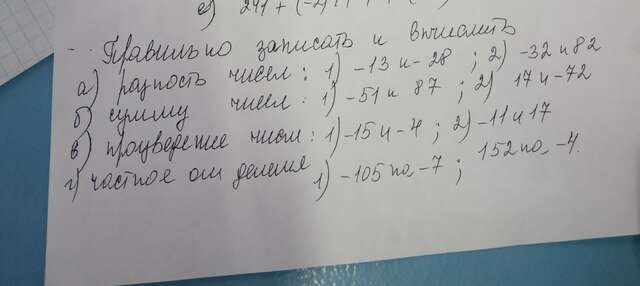 е) 241 + (-2
Правильно записать и вычислить
а) разность чисел: 1) -13 и -28 ; 2) -32 и 82
б) сумму чисел: 1) -51 и 87 ; 2) 17 и -72
в) произведение чисел: 1) -15 и -4 ; 2) -11 и 17
г) частное от деления 1) -105 на -7 ; 152 на -4.